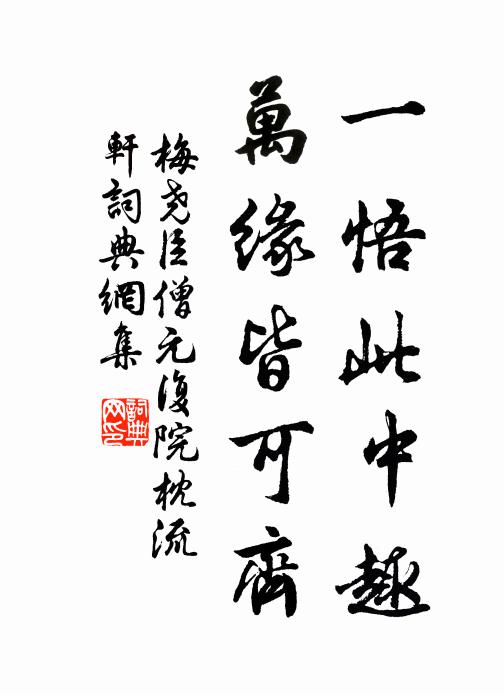 一悟此中趣
萬緣皆可齊
梅堯臣僧元復院枕流
軒詞典網集
詞典
网印